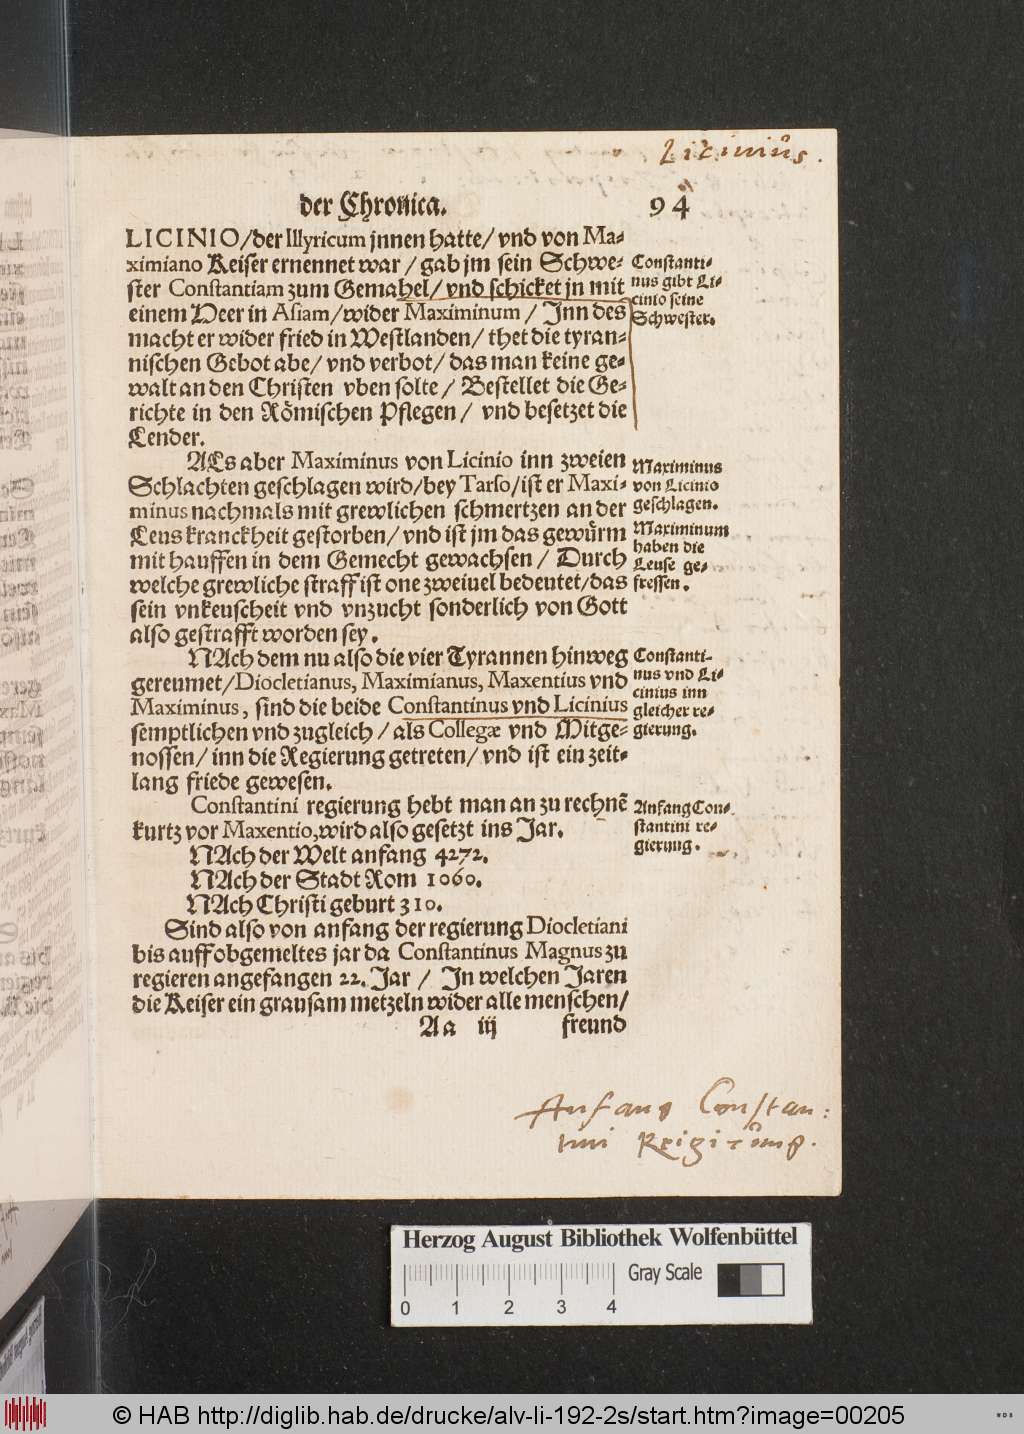 Liciniůs.
der Chronica. 94
LICINIO/der Illyricum jnnen hatte/ vnd von Ma-
ximiano Keiser ernennet war / gab jm sein Schwe-
ster Constantiam zum Gemahel/ vnd schicket jn mit
einem Heer in Asiam/wider Maximinum / Inn des
macht er wider fried in Westlanden/ thet die tyran-
nischen Gebot abe/ vnd verbot/ das man keine ge-
walt an den Christen vben solte / Bestellet die Ge-
richte in den Römischen Pflegen / vnd besetzet die
Lender.
Constanti-
nus gibt Li-
cinio seine
Schwester.
ALs aber Maximinus von Licinio inn zweien
Schlachten geschlagen wird/bey Tarso/ist er Maxi-
minus nachmals mit grewlichen schmertzen an der
Leus kranckheit gestorben/ vnd ist jm das gewürm
mit hauffen in dem Gemecht gewachsen / Durch
welche grewliche straff ist one zweiuel bedeutet/das
sein vnkeuscheit vnd vnzucht sonderlich von Gott
also gestrafft worden sey.
Maximinus
von Licinio
geschlagen.
Maximinum
haben die
Leuse ge-
fressen.
NAch dem nu also die vier Tyrannen hinweg
gereumet/Diocletianus, Maximianus, Maxentius vnd
Maximinus, sind die beide Constantinus vnd Licinius
semptlichen vnd zugleich / als Collegæ vnd Mitge-
nossen/ inn die Regierung getreten/ vnd ist ein zeit-
lang friede gewesen.
Constanti-
nus vnd Li-
cinius inn
gleicher re-
gierung.
Constantini regierung hebt man an zu rechnē
kurtz vor Maxentio,wird also gesetzt ins Jar.
Anfang Con-
stantini re-
gierung.
NAch der Welt anfang 4272.
NAch der Stadt Rom 1060.
NAch Christi geburt 310.
Sind also von anfang der regierung Diocletiani
bis auff obgemeltes jar da Constantinus Magnus zu
regieren angefangen 22. Jar / In welchen Jaren
die Keiser ein grausam metzeln wider alle menschen/
Aa iij freund
Anfang Constan:
tini Reigirůng.
Herzog August Bibliothek Wolfenbüttel
Gray Scale
0 1 2 3 4
© HAB http://diglib.hab.de/drucke/alv-li-192-2s/start.htm?image=00205